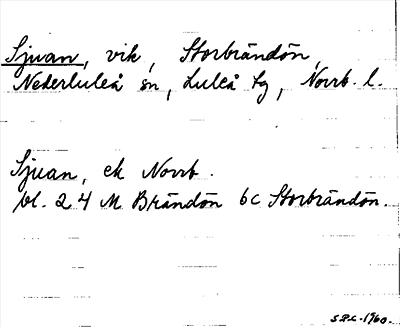 Sjuan, vik, Storbrändön,
Nederluleå sn, Luleå tg, Norrb. l.
Sjuan, ek Norrb.
bl. 24 M Brändön 6c Storbrändön.
S.R.L. 1960.